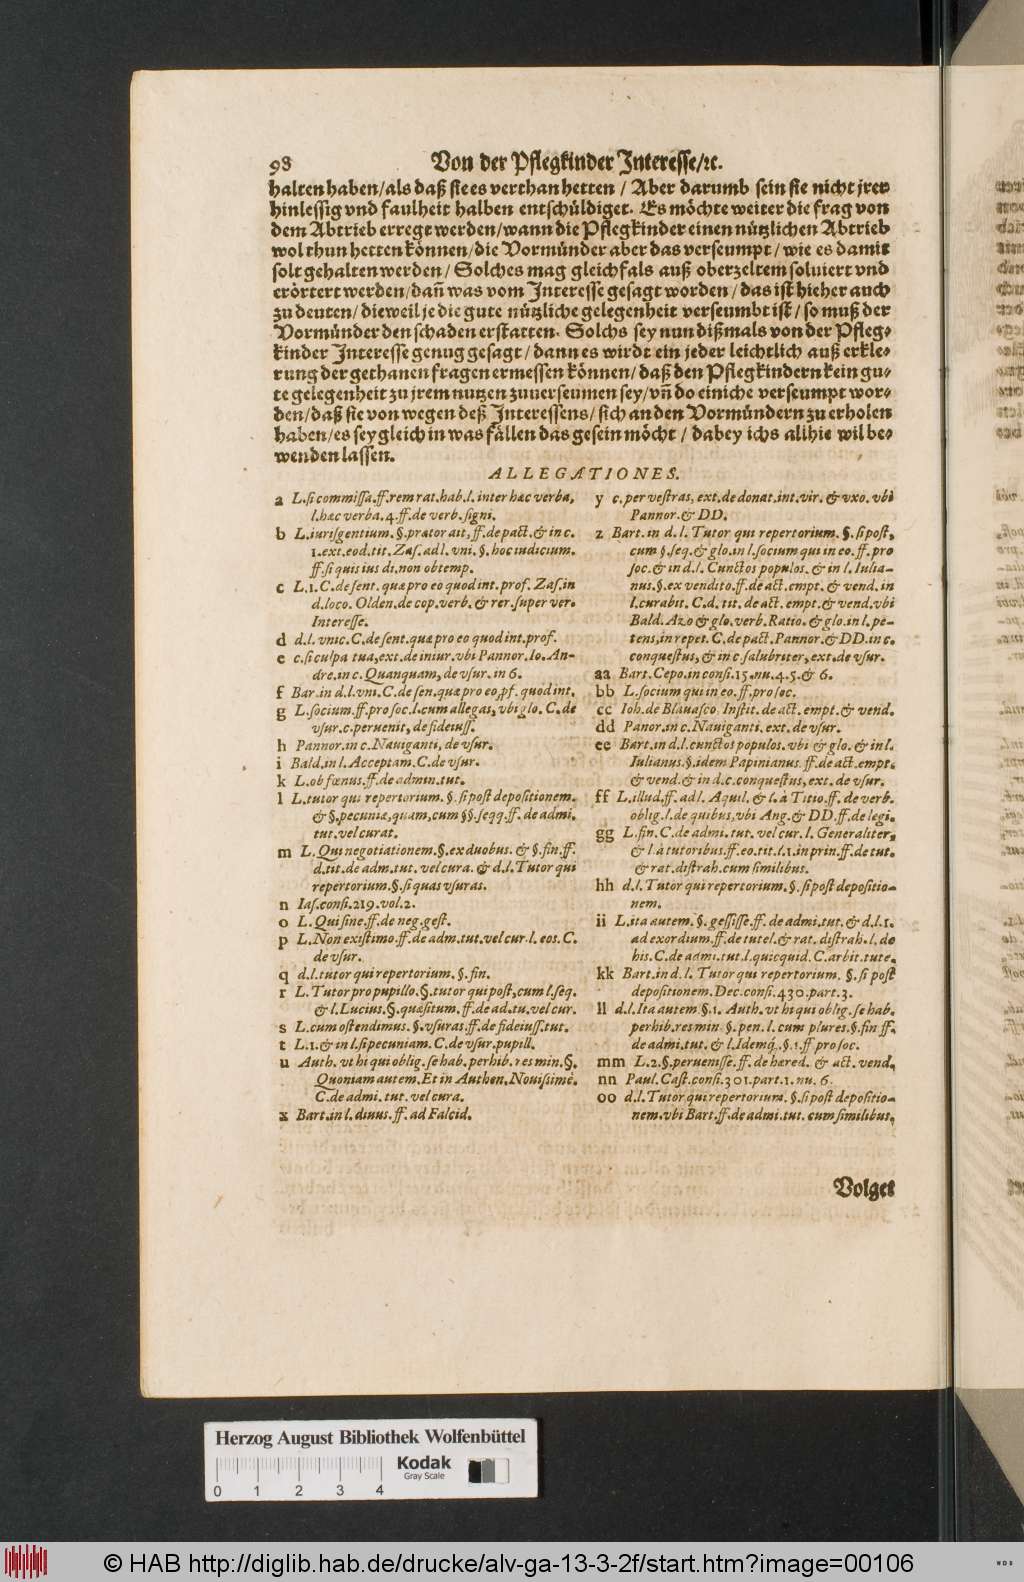 98 Von der Pflegkinder Interesse/ꝛc.
halten haben/als daß sie es verthan hetten / Aber darumb sein sie nicht jrer
hinlessig vnd faulheit halben entschüldiget. Es möchte weiter die frag von
dem Abtrieb erregt werden/wann die Pflegkinder einen nützlichen Abtrieb
wol thun hetten können/die Vormünder aber das verseumpt/ wie es damit
solt gehalten werden/ Solches mag gleichfals auß oberzeltem soluiert vnd
erörtert werden/dañ was vom Interesse gesagt worden / das ist hieher auch
zu deuten/dieweil je die gute nützliche gelegenheit verseumbt ist/ so muß der
Vormünder den schaden erstatten. Solchs sey nun dißmals von der Pfleg-
kinder Interesse genug gesagt / dann es wirdt ein jeder leichtlich auß erkle-
rung der gethanen fragen ermessen können/daß den Pflegkindern kein gu-
te gelegenheit zu jrem nutzen zuuerseumen sey/vñ do einiche verseumpt wor-
den/daß sie von wegen deß Interessens/ sich an den Vormündern zu erholen
haben/es sey gleich in was fällen das gesein möcht / dabey ichs allhie wil be-
wenden lassen.
ALLEGATIONES.
a L.si commissa.ff.rem rat.hab.l.inter hæc verba,
l.hæc verba.4.ff.de verb.signi.
b L.iurisgentium.§.prætor ait,ff.de pact.& in c.
1.ext.eod.tit.Zas.ad l.vni.§.hoc iudicium.
ff.si quis ius di.non obtemp.
c L.1.C.de sent.quæ pro eo quod int.prof.Zas.in
d.loco.Olden.de cop.verb.& rer.super ver.
Interesse.
d d.l.vnic.C.de sent.quæ pro eo quod int.prof.
e c.si culpa tua,ext.de iniur.vbi Pannor.Io.An-
dre.in c.Quanquam,de vsur.in 6.
f Bar.in d.l.vni.C.de sen.quæ pro eo,pf.quod int.
g L.socium.ff.pro soc.l.cum allegas,vbi glo.C.de
vsur.c.peruenit,de fideiuss.
h Pannor.in c.Nauiganti,de vsur.
i Bald.in l.Acceptam.C.de vsur.
k L.ob fœnus.ff.de admin.tut.
l L.tutor qui repertorium.§.si post depositionem.
& §.pecuniæ,quam,cum §§.seqq.ff.de admi.
tut.vel curat.
m L.Qui negotiationem.§.ex duobus.& §.fin.ff.
d.tit.de adm.tut.vel cura.& d.l.Tutor qui
repertorium.§.si quas vsuras.
n Ias.consi.219.vol.2.
o L.Qui sine.ff.de neg.gest.
p L.Non existimo.ff.de adm.tut.vel cur.l.eos.C.
de vsur.
q d.l.tutor qui repertorium.§.fin.
r L.Tutor pro pupillo.§.tutor qui post,cum l.seq.
& l.Lucius.§.quæsitum.ff.de ad.tu.vel cur.
s L.cum ostendimus.§.vsuras.ff.de fideiuss.tut.
t L.1.& in l.si pecuniam.C.de vsur.pupill.
u Auth.vt hi qui oblig.se hab.perhib.res min.§.
Quoniam autem.Et in Authen.Nouissimè.
C.de admi.tut.vel cura.
x Bart.in l.diuus.ff.ad Falcid.
y c.per vestras,ext.de donat.int.vir.& vxo.vbi
Pannor.& DD.
z Bart.in d.l.Tutor qui repertorium.§.si post,
cum §.seq.& glo.in l.socium qui in eo.ff.pro
soc.& in d.l.Cunctos populos.& in l.Iulia-
nus.§.ex vendito.ff.de act.empt.& vend.in
l.curabit.C.d.tit.de act.empt.& vend.vbi
Bald.Azo & glo.verb.Ratio.& glo.in l.pe-
tens,in repet.C.de pact.Pannor.& DD.in c.
conquestus,& in c salubriter,ext.de vsur.
aa Bart.Cepo.in consi.15.nu.4.5.& 6.
bb L.socium qui in eo.ff.pro soc.
cc Ioh.de Blauasco.Instit.de act.empt.& vend.
dd Panor.in c.Nauiganti.ext.de vsur.
ee Bart.in d.l.cunctos populos.vbi & glo.& in l.
Iulianus.§.idem Papinianus.ff.de act.empt.
& vend.& in d.c.conquestus,ext.de vsur.
ff L.illud.ff.ad l.Aquil.& l.à Titio.ff.de verb.
oblig.l.de quibus,vbi Ang.& DD.ff.de legi.
gg L.fin.C.de admi.tut.vel cur.l.Generaliter,
& l à tutoribus.ff.eo.tit.l.1.in prin.ff.de tut.
& rat.distrah.cum similibus.
hh d.l.Tutor qui repertorium.§.si post depositio-
nem.
ii L.ita autem.§.gessisse.ff.de admi.tut.& d.l.1.
ad exordium.ff.de tutel.& rat.distrah.l.de
his.C.de admi.tut.l.quicquid.C.arbit.tute.
kk Bart.in d.l.Tutor qui repertorium.§.si post
depositionem.Dec.consi.430.part.3.
ll d.l.Ita autem §.1.Auth.vt hi qui oblig.se hab.
perhib.res min §.pen.l.cum plures.§.fin ff.
de admi.tut.& l.Idemq́.§.1.ff pro soc.
mm L.2.§.peruenisse.ff.de hæred.& act.vend.
nn Paul.Cast.consi.301.part.1.nu.6.
oo d.l.Tutor qui repertorium.§.si post depositio-
nem.vbi Bart.ff.de admi.tut.cum similibus.
Volget
Herzog August Bibliothek Wolfenbüttel
Kodak
Gray Scale
0 1 2 3 4
© HAB http://diglib.hab.de/drucke/alv-ga-13-3-2f/start.htm?image=00106